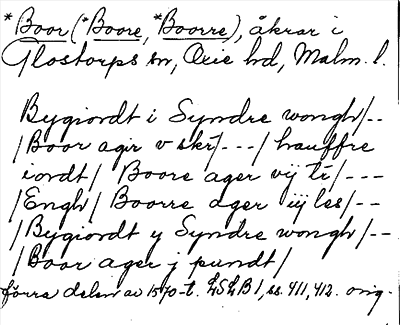 *Boor (*Boore, *Boorre), åkrar i
Glostorps sn, Oxie hd, Malm. l.
Bygiordt i Syndre wongh/--
/Boor agir v skr̄/---/hauffre
iordt/ Boore ager vij tr̄/---
/Engh/ Boorre ager iij les/--
/Bygiordt y Syndre wongh/--
/Boor ager j pundt/
förra delen av 1570-t. LSLB 1, ss. 411, 412. orig.